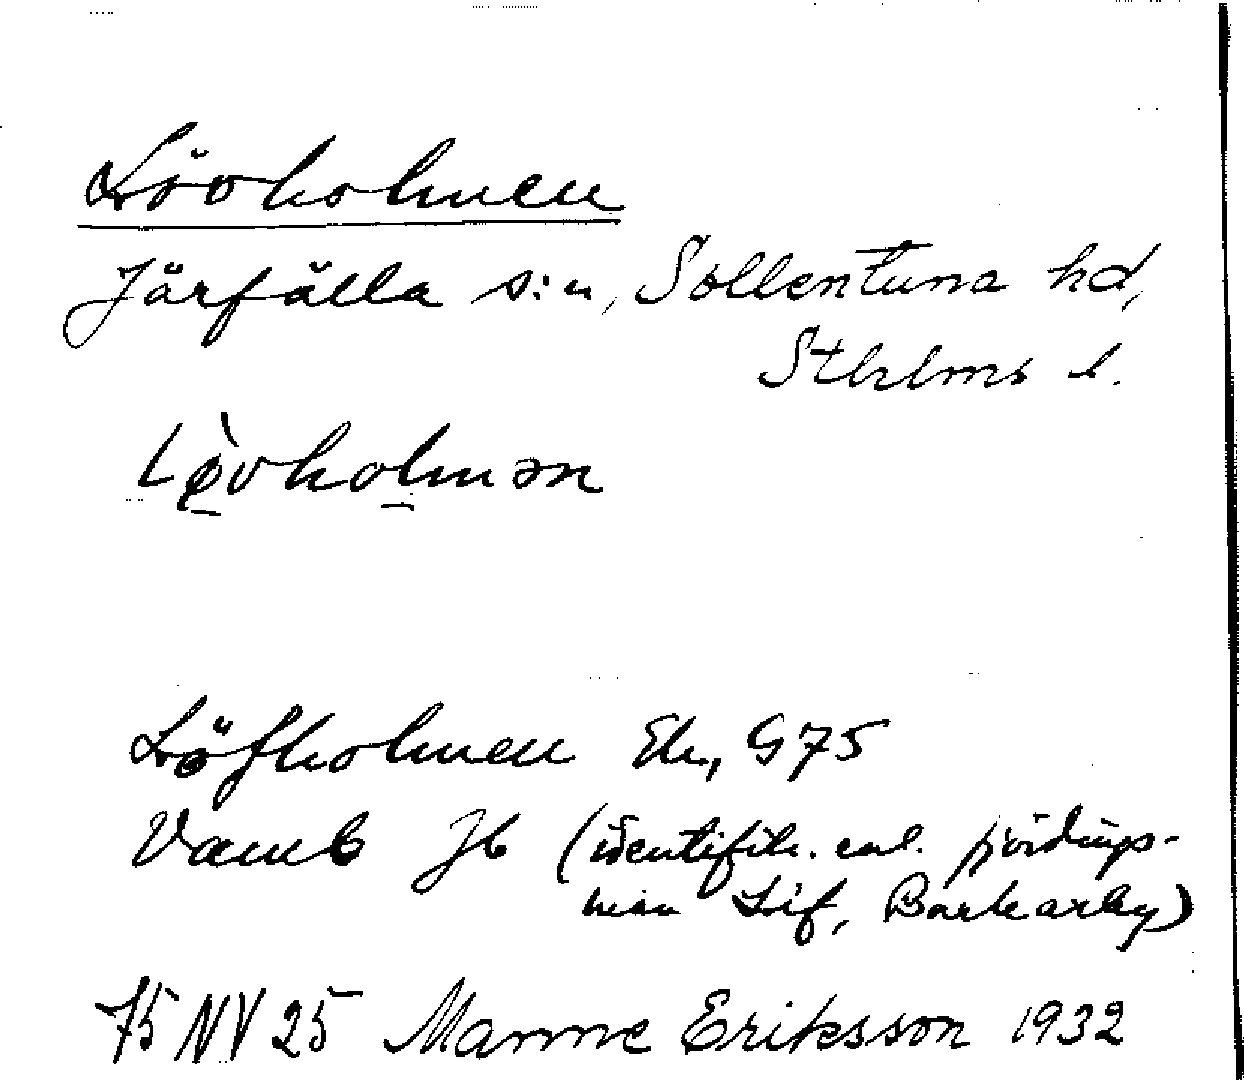 Lövholmen
Järfälla s:n, Sollentuna hd,
Sthlms l.
Lø̀vholmən
Löfholmen Ek, G75
Vamb Jb (identifik. enl. fjärdings-
man Löf, Barkarby)
75 NV 25 Manne Eriksson 1932